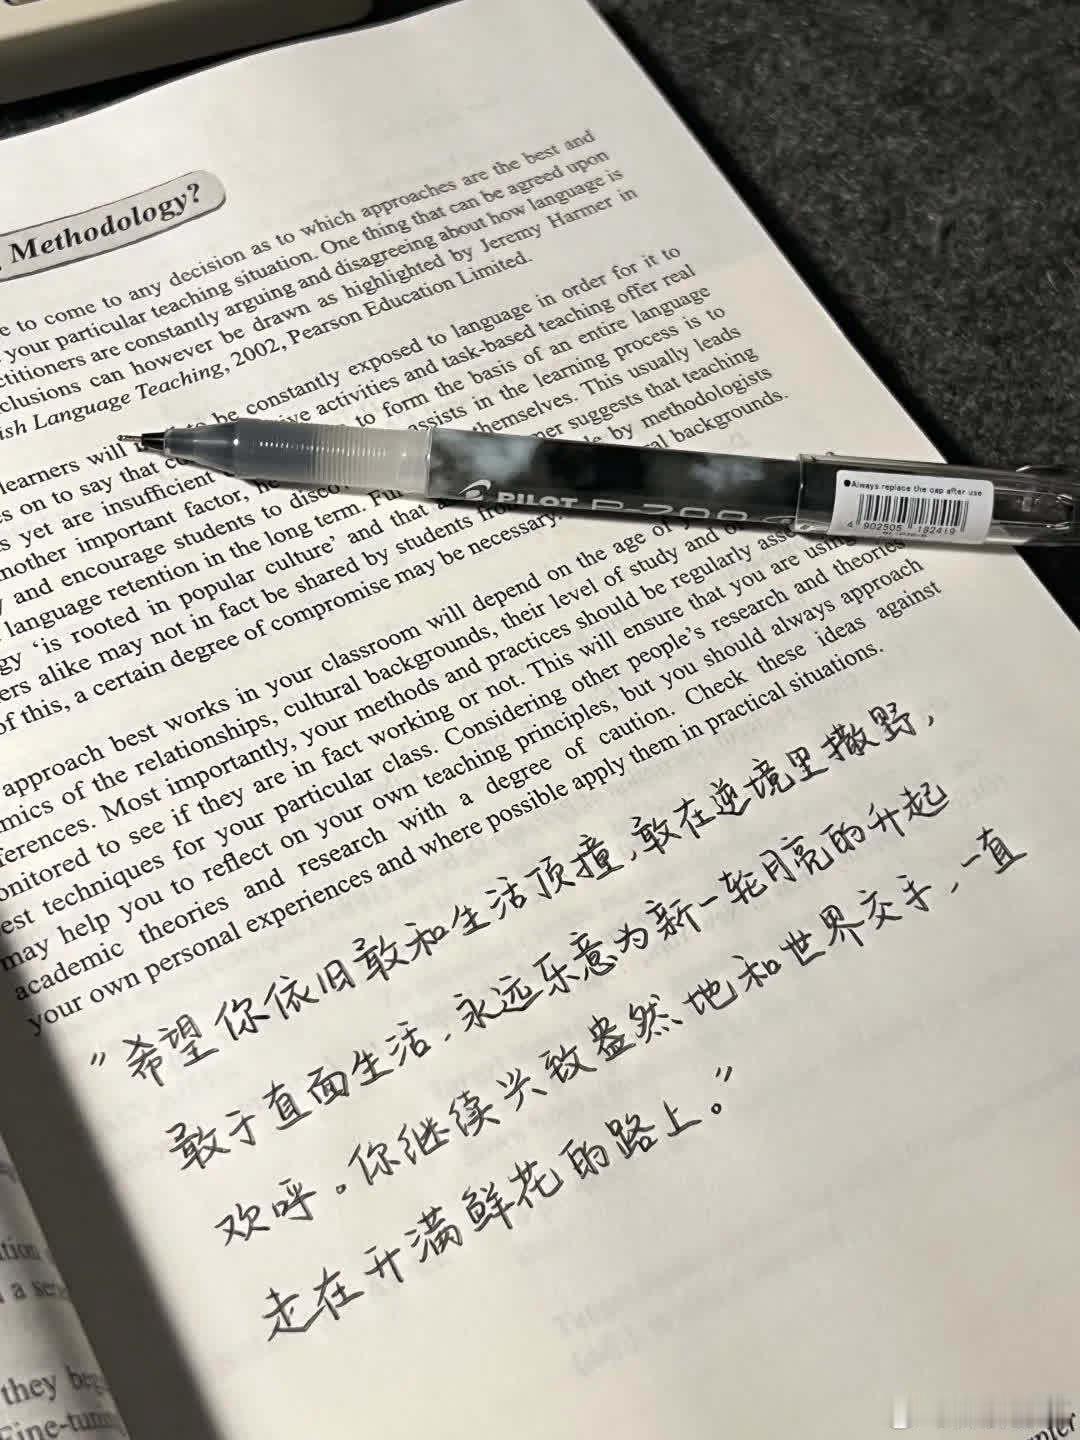 Methodology?
to come to any decision as to which approaches are the best and
your particular teaching situation. One thing that can be agreed upon
are constantly arguing and disagreeing about how language is
can however be drawn as highlighted by Jeremy Harmer in
Language Teaching, 2002, Pearson Education Limited.
learners will be constantly exposed to language in order for it to
on to say that activities and task-based teaching offer real
yet are insufficient to form the basis of an entire language
important factor, assists in the learning process is to
and encourage students to themselves. This usually leads
language retention in the long term. suggests that teaching
'is rooted in popular culture' and that by methodologists
alike may not in fact be shared by students backgrounds.
of this, a certain degree of compromise may be necessary.
PILOT
●Always replace the cap after use
4 902505 182419
approach best works in your classroom will depend on the age of
of the relationships, cultural backgrounds, their level of study and
Most importantly, your methods and practices should be regularly
to see if they are in fact working or not. This will ensure that you are using
techniques for your particular class. Considering other people's research and theories
may help you to reflect on your own teaching principles, but you should always approach
academic theories and research with a degree of caution. Check these ideas against
your own personal experiences and where possible apply them in practical situations.
"希望你依旧敢和生活顶撞,敢在逆境里撒野,
敢于直面生活,永远乐意为新一轮月亮的升起
欢呼。你继续兴致盎然地和世界交手,一直
走在开满鲜花的路上。"
they